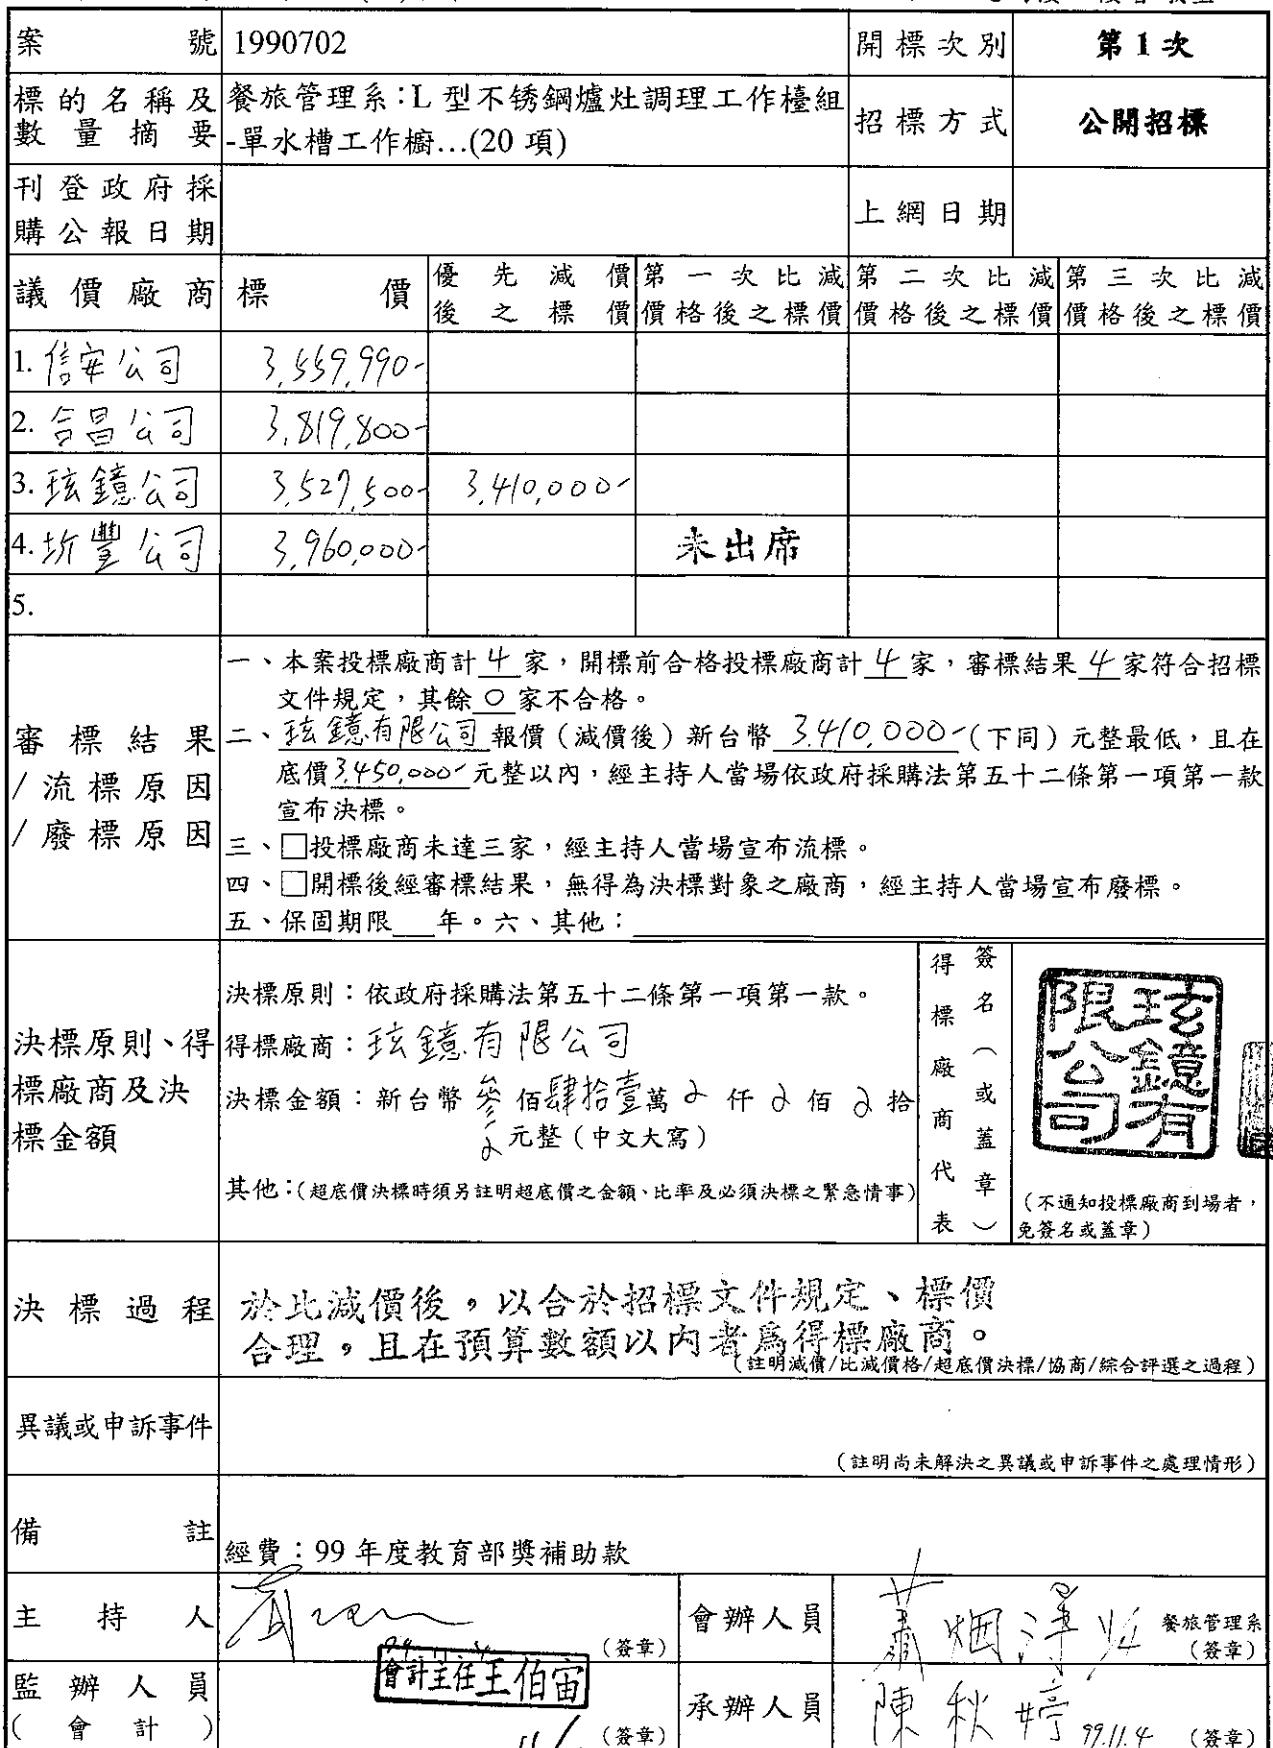 案號 1990702 開標次別 第1次
標的名稱及數量摘要 餐旅管理系:L 型不锈鋼爐灶調理工作檯組
-單水槽工作櫥…(20 項) 招標方式 公開招標
刊登政府採購公報日期 上網日期
議價廠商 標價 優先減價後之標價 第一次比減價格後之標價 第二次比減價格後之標價 第三次比減價格後之標價
1. 信安公司 3,559,990-
2. 合昌公司 3,819,800-
3. 玹鐿公司 3,527,500- 3,410,000-
4. 圻豐公司 3,960,000- 未出席
5.
審標結果/流標原因/廢標原因
一、本案投標廠商計 4 家,開標前合格投標廠商計 4 家,審標結果 4 家符合招標
文件規定,其餘 0 家不合格。
二、玹鐿有限公司 報價(減價後)新台幣 3,410,000-(下同)元整最低,且在
底價 3,450,000- 元整以內,經主持人當場依政府採購法第五十二條第一項第一款
宣布決標。
三、□投標廠商未達三家,經主持人當場宣布流標。
四、□開標後經審標結果,無得為決標對象之廠商,經主持人當場宣布廢標。
五、保固期限___年。六、其他:
決標原則、得標廠商及決標金額
決標原則:依政府採購法第五十二條第一項第一款。
得標廠商:玹鐿有限公司
決標金額:新台幣 參 佰肆拾壹萬 0 仟 0 佰 0 拾
0 元整(中文大寫)
其他:(超底價決標時須另註明超底價之金額、比率及必須決標之緊急情事)
得標廠商代表
簽名(或蓋章)
玹鐿有限公司
(不通知投標廠商到場者,
免簽名或蓋章)
決標過程 於比減價後,以合於招標文件規定、標價
合理,且在預算數額以內者為得標廠商。
(註明減價/比減價格/超底價決標/協商/綜合評選之過程)
異議或申訴事件
(註明尚未解決之異議或申訴事件之處理情形)
備註 經費:99 年度教育部獎補助款
主持人 (簽章) 會辦人員 餐旅管理系
(簽章)
監辦人員
(會計) 會計主任王伯宙 (簽章) 承辦人員 陳秋婷 99.11.4 (簽章)